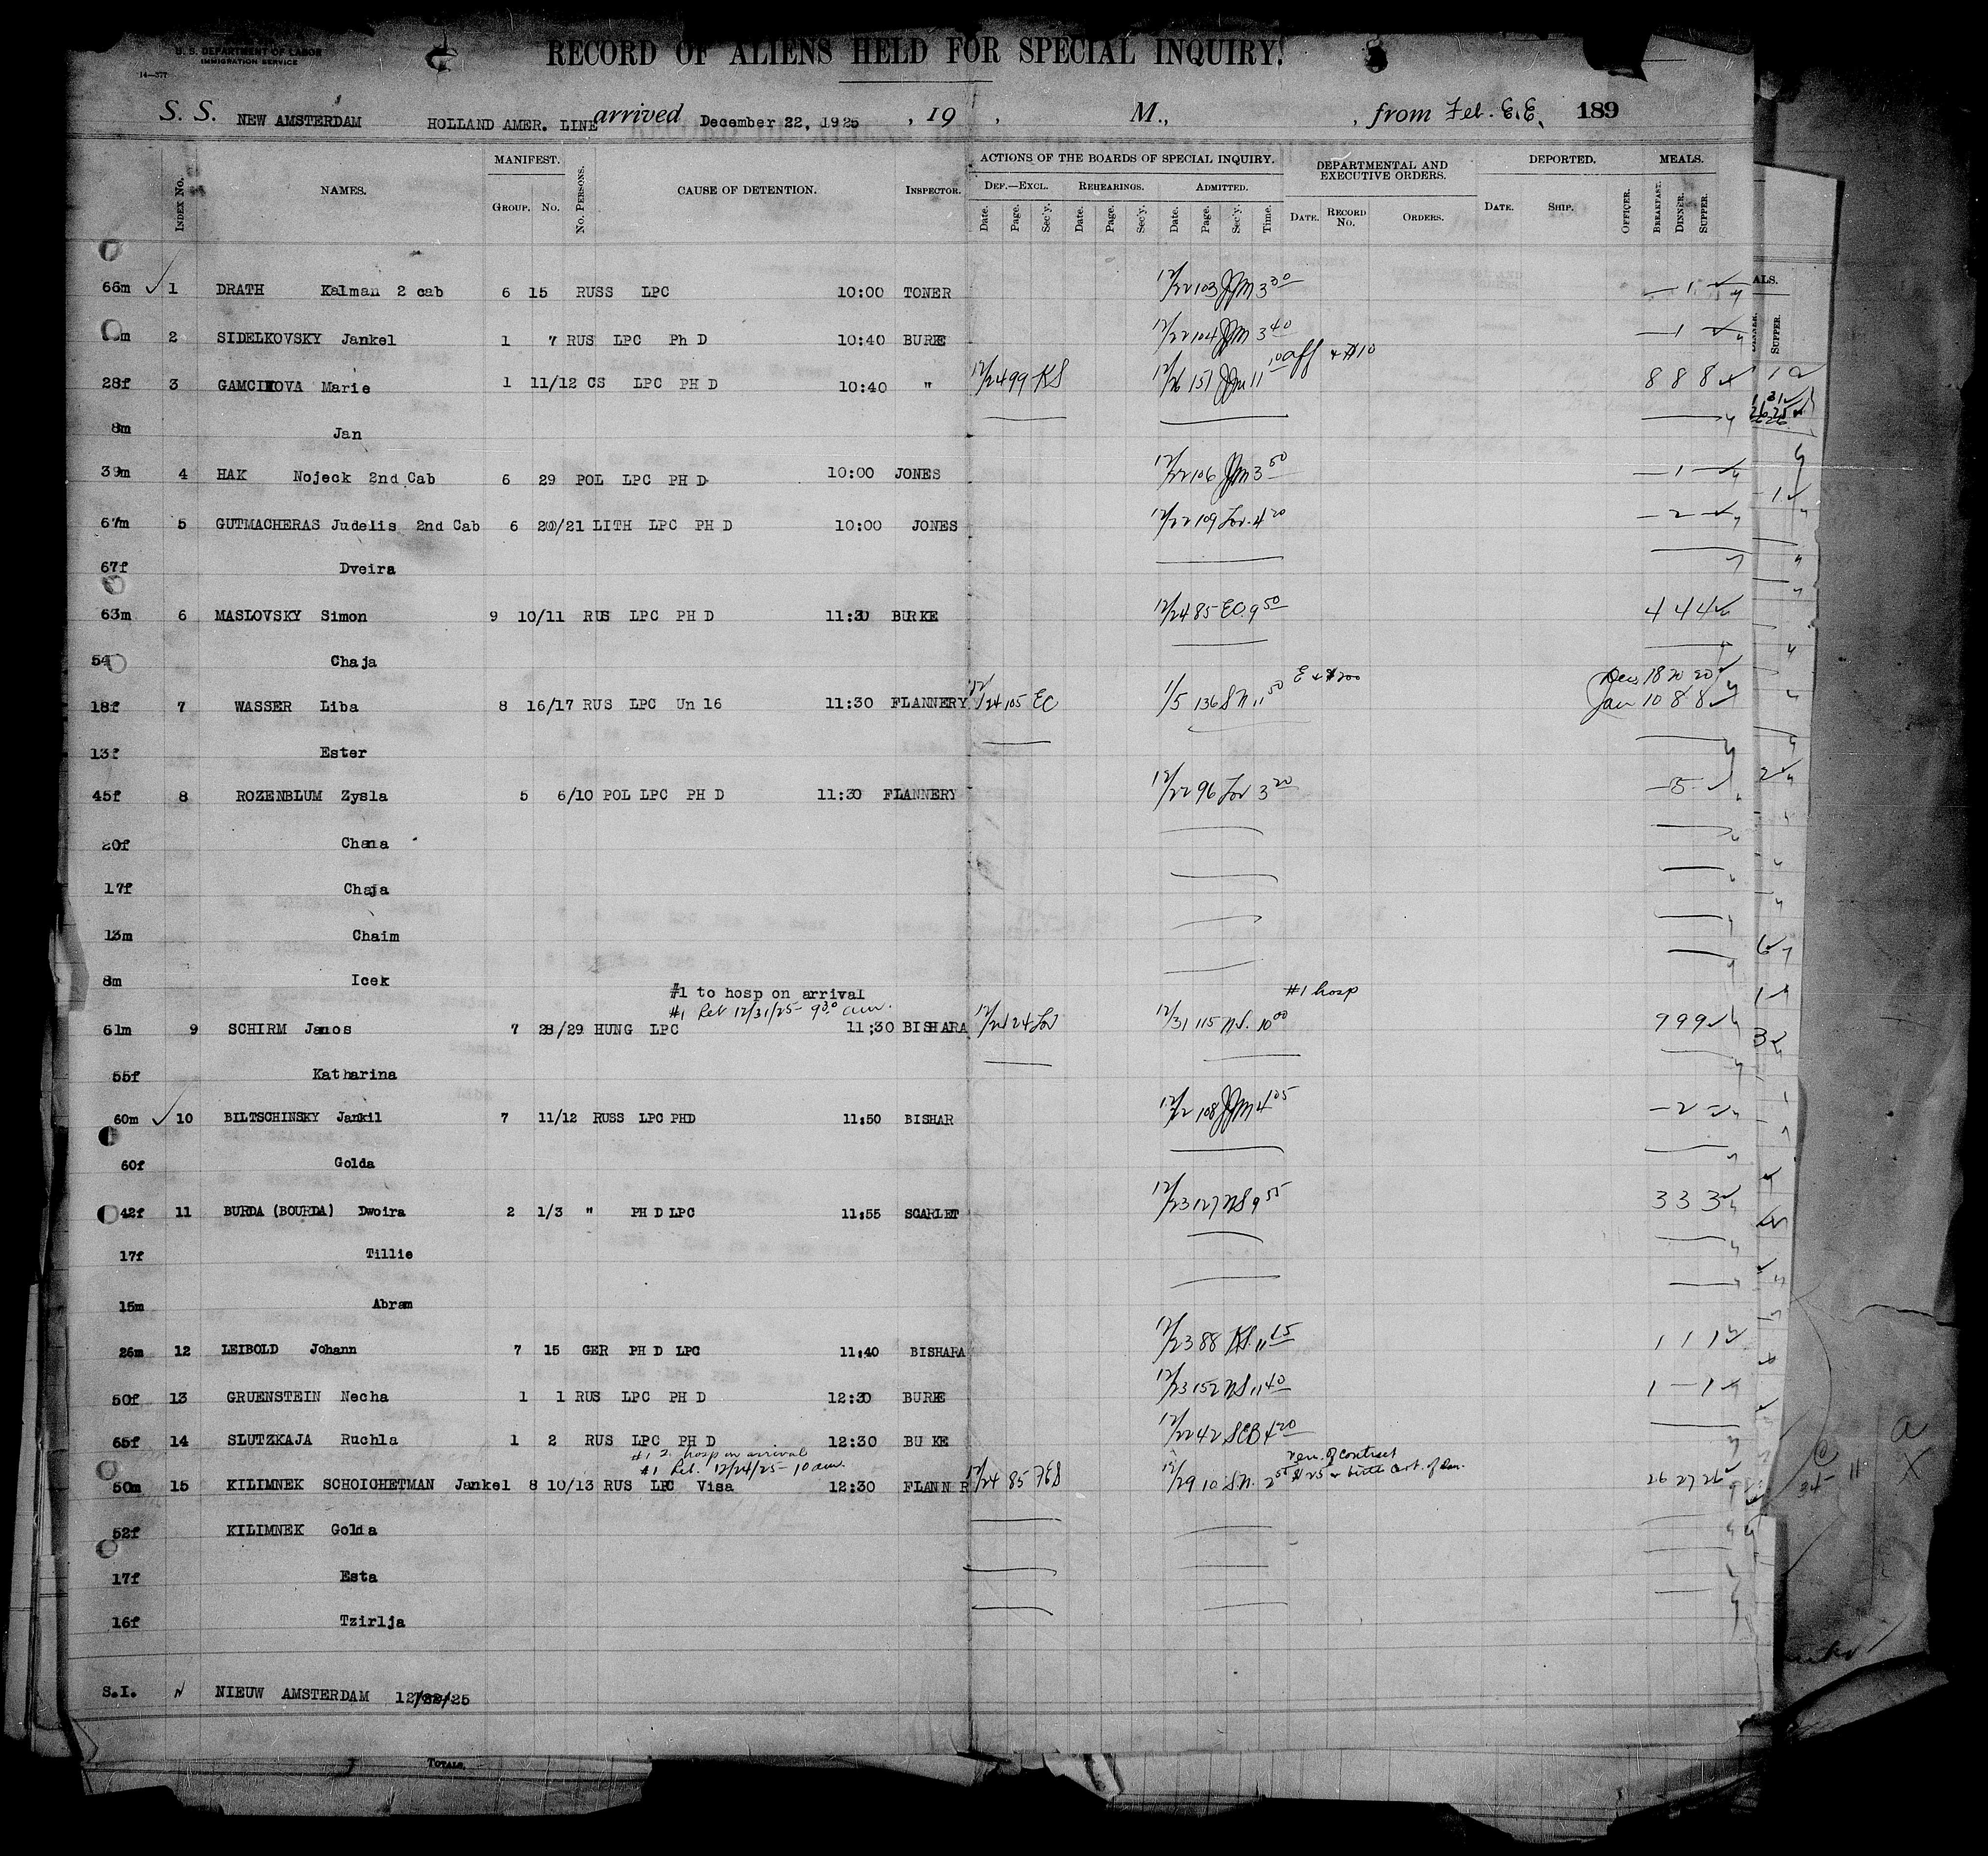 U. S. DEPARTMENT OF LABOR
IMMIGRATION SERVICE
14—377
RECORD OF ALIENS HELD FOR SPECIAL INQUIRY.
S. S. NEW AMSTERDAM HOLLAND AMER. LINE arrived December 22, 1925 , 19 , M., , from Feb. E.E. 189
INDEX No. NAMES. MANIFEST. GROUP. No. No. PERSONS. CAUSE OF DETENTION. INSPECTOR. ACTIONS OF THE BOARDS OF SPECIAL INQUIRY. DEF.—EXCL. Date. Page. Sec'y. REHEARINGS. Date. Page. Sec'y. ADMITTED. Date. Page. Sec'y. Time. DEPARTMENTAL AND EXECUTIVE ORDERS. DATE. RECORD No. ORDERS. DEPORTED. DATE. SHIP. OFFICER. MEALS. BREAKFAST. DINNER. SUPPER.
66m 1 DRATH Kalman 2 cab 6 15 RUSS LPC 10:00 TONER 12/22 103 JJM 3 30 — 1 —
m 2 SIDELKOVSKY Jankel 1 7 RUS LPC Ph D 10:40 BURKE 12/22 104 JJM 3 40 — 1 —
28f 3 GAMCIKOVA Marie 1 11/12 CS LPC PH D 10:40 " 12/24 99 KS 12/26 157 JJM 11 10 aff + $10 8 8 8
8m Jan
39m 4 HAK Nojeck 2nd Cab 6 29 POL LPC PH D 10:00 JONES 12/22 106 JJM 3 50 — 1 —
67m 5 GUTMACHERAS Judelis 2nd Cab 6 20/21 LITH LPC PH D 10:00 JONES 12/22 109 Lov. 4 20 — 2 —
67f Dveira
63m 6 MASLOVSKY Simon 9 10/11 RUS LPC PH D 11:30 BURKE 12/24 85 EC 9 50 4 4 4
54 Chaja
18f 7 WASSER Liba 8 16/17 RUS LPC Un 16 11:30 FLANNERY 12/24 105 EC 1/5 136 SN 11 50 E + $200 Dec 18 20 20
Jan 10 8 8
13f Ester
45f 8 ROZENBLUM Zysla 5 6/10 POL LPC PH D 11:30 FLANNERY 12/22 96 Lov 3 20 — 5 —
20f Chana
17f Chaja
13m Chaim
8m Icek
#1 to hosp on arrival #1 hosp
#1 Ret 12/31/25 - 9 30 am.
61m 9 SCHIRM Janos 7 28/29 HUNG LPC 11;30 BISHARA 12/24 24 Lov 12/31 115 N.S. 10 00 9 9 9
55f Katharina
60m 10 BILTSCHINSKY Jankil 7 11/12 RUSS LPC PHD 11:50 BISHAR 12/22 108 JJM 4 05 — 2 —
60f Golda
42f 11 BURDA (BOURDA) Dwoira 2 1/3 " PH D LPC 11:55 SCARLET 12/23 127 NS 9 55 3 3 3
17f Tillie
15m Abram
26m 12 LEIBOLD Johann 7 15 GER PH D LPC 11:40 BISHARA 12/23 88 KS. 11 15 1 1 1
50f 13 GRUENSTEIN Necha 1 1 RUS LPC PH D 12:30 BURKE 12/23 152 NS 11 40 1 — 1
65f 14 SLUTZKAJA Ruchla 1 2 RUS LPC PH D 12:30 BU KE 12/22 42 SEB 4 20
#1 2 hosp on arrival
#1 Ret. 12/24/25 - 10 am. ren. of contract
50m 15 KILIMNEK SCHOICHETMAN Jankel 8 10/13 RUS LPC Visa 12:30 FLANN R 12/24 85 FES 12/29 10 S.N. 2 50 $25 + birth cert. of 26 27 26
52f KILIMNEK Golda
17f Esta
16f Tzirlja
S.I. NIEUW AMSTERDAM 12/22/25
TOTALS,